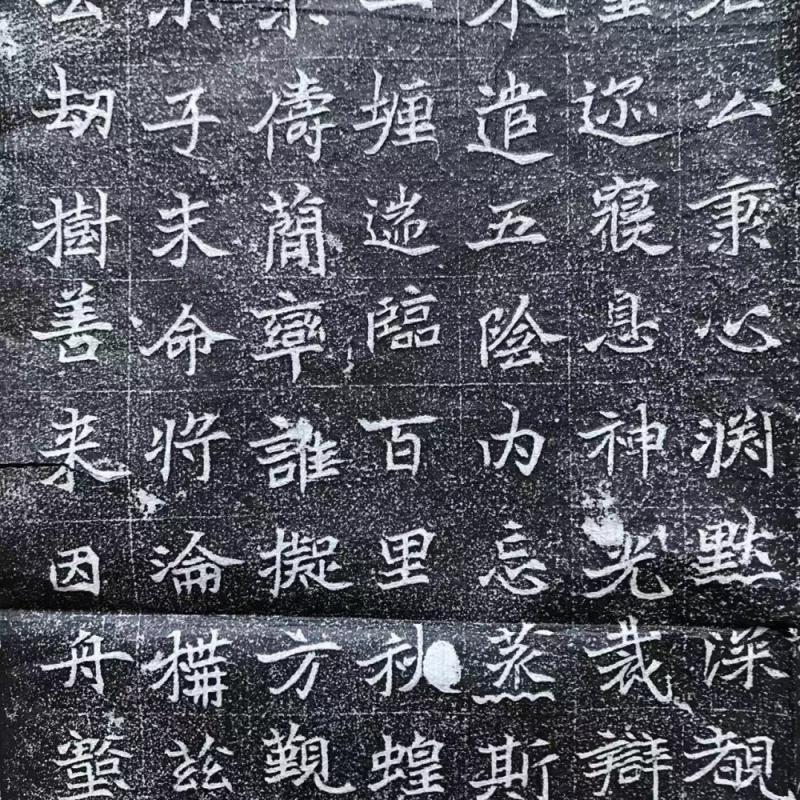 公秉心渊默深覩
迩寝息神光裁辯
遣五陰内忘蒸斯
一遄臨百里秋蝗
儔蕳誰擬方覲
子未命将淪構茲
劫樹善来因舟壑